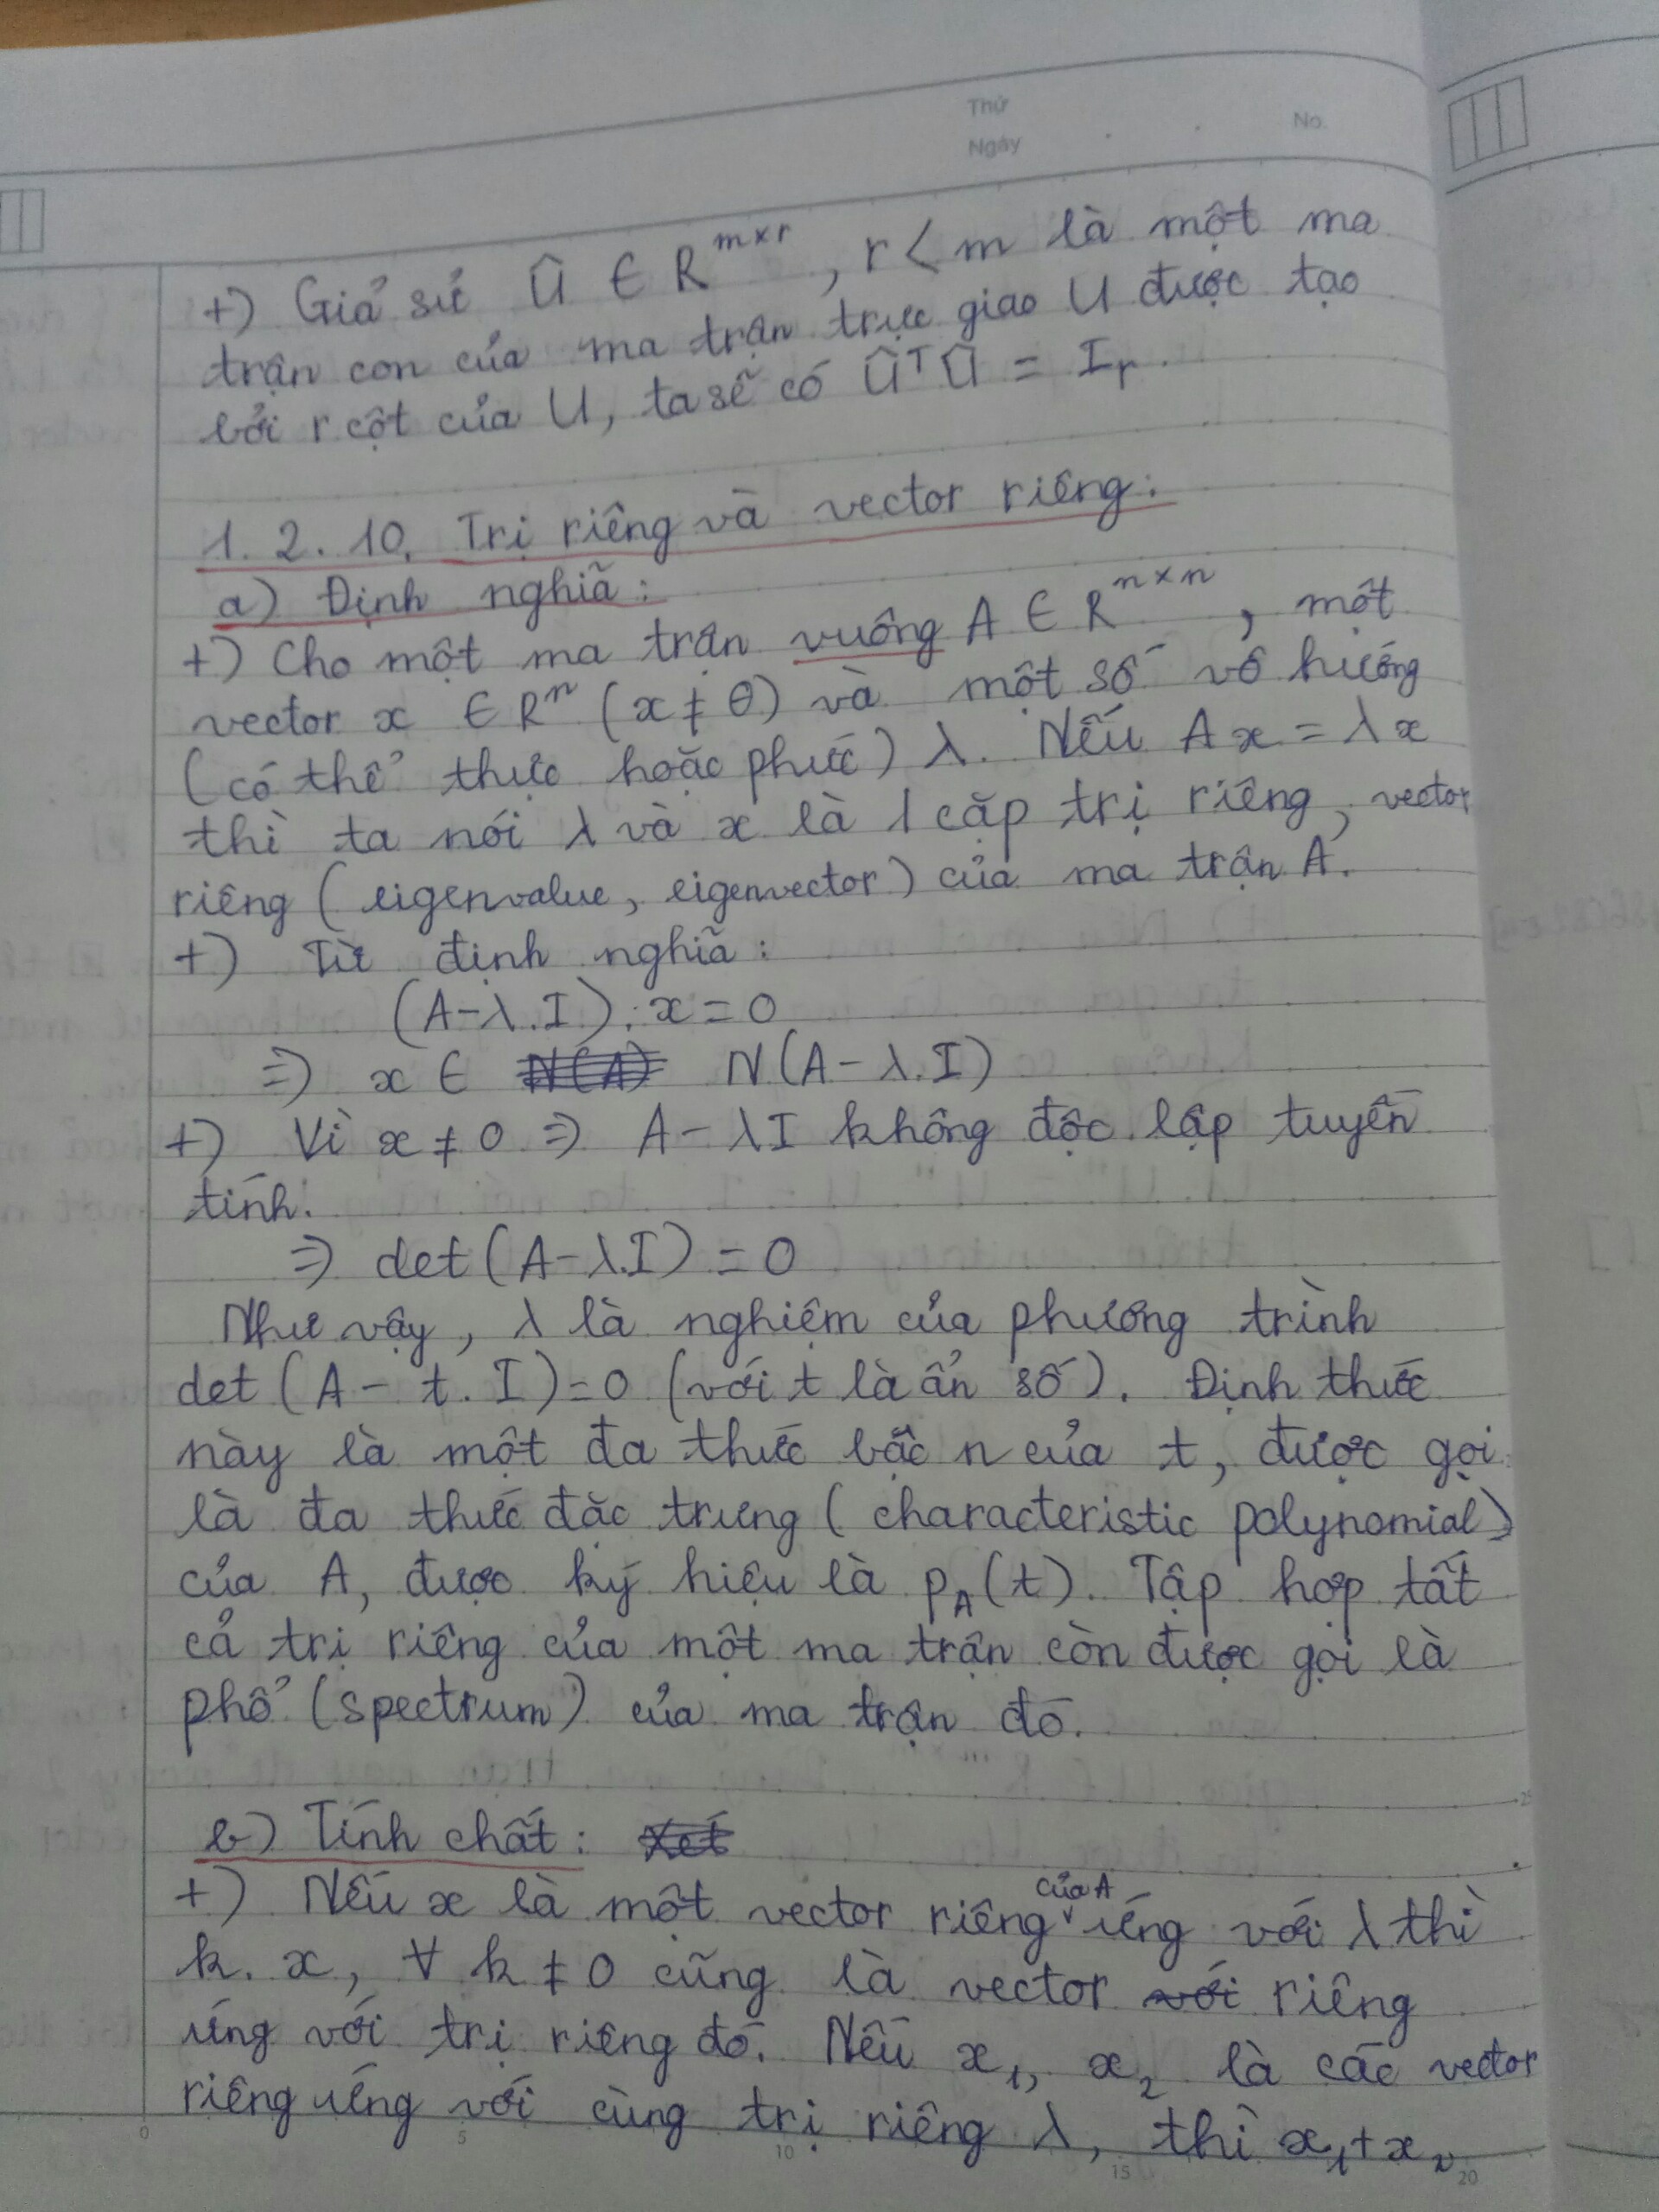 Thứ
Ngày
No.
+) Giả sử Û ∈ R^{m×r}, r < m là một ma
trận con của ma trận trực giao U được tạo
bởi r cột của U, ta sẽ có Û^T Û = I_r.
1.2.10. Trị riêng và vector riêng:
a) Định nghĩã:
+) Cho một ma trận vuông A ∈ R^{n×n}, một
vector x ∈ R^n (x ≠ 0) và một số vô hướng
(có thể thực hoặc phức) λ. Nếu Ax = λx
thì ta nói λ và x là 1 cặp trị riêng, vector
riêng (eigenvalue, eigenvector) của ma trận A.
+) Từ định nghĩã:
(A-λ.I).x = 0
⇒ x ∈ N(A) N(A-λ.I)
+) Vì x ≠ 0 ⇒ A-λI không độc lập tuyến
tính.
⇒ det(A-λ.I) = 0
Như vậy, λ là nghiệm của phương trình
det(A-t.I)=0 (với t là ẩn số). Định thức
này là một đa thức bậc n của t, được gọi
là đa thức đặc trưng (characteristic polynomial)
của A, được ký hiệu là p_A(t). Tập hợp tất
cả trị riêng của một ma trận còn được gọi là
phổ (spectrum) của ma trận đó.
b) Tính chất: Xét
+) Nếu x là một vector riêng của A ứng với λ thì
k.x, ∀ k ≠ 0 cũng là vector với riêng
ứng với trị riêng đó. Nếu x_1, x_2 là các vector
riêng ứng với cùng trị riêng λ, thì x_1+x_2
0 5 10 15 20
25